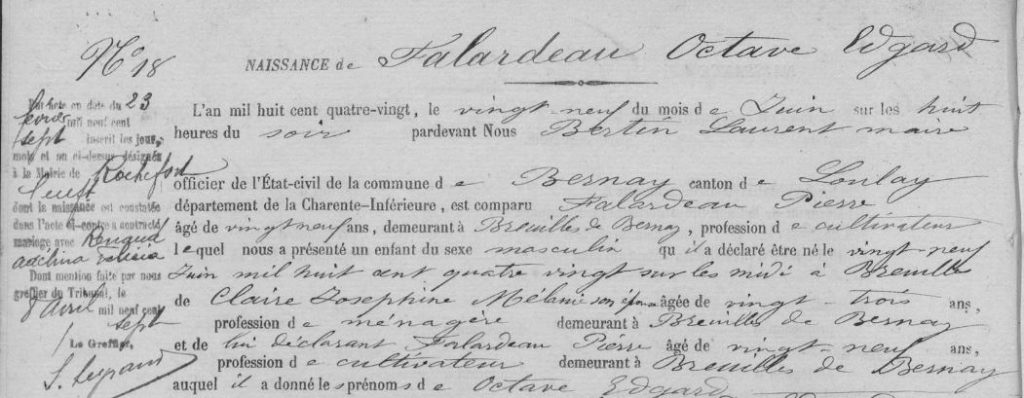 N° 18
NAISSANCE de Falardeau Octave Edgard
Par acte en date du 23
février mil neuf cent
sept inscrit les jour,
mois et an ci-dessus désignés
à la Mairie de Rochefort
dont la naissance est constatée
dans l'acte ci-contre a contracté
mariage avec
Dont mention faite par nous
greffier du Tribunal, le
8 avril mil neuf cent
sept
Le Greffier,
L'an mil huit cent quatre-vingt, le vingt neuf du mois de Juin sur les huit
heures du soir pardevant Nous Bertin Laurent maire
officier de l'État-civil de la commune de Bernay canton de Loulay
département de la Charente-Inférieure, est comparu Falardeau Pierre
âgé de vingt neuf ans, demeurant à Breuilles de Bernay, profession de cultivateur
lequel nous a présenté un enfant du sexe masculin qu'il a déclaré être né le vingt neuf
Juin mil huit cent quatre vingt sur les midi à Breuilles
de Claire Josephine Mélanie son épouse âgée de vingt-trois ans,
profession de ménagère demeurant à Breuilles de Bernay
et de lui déclarant Falardeau Pierre âgé de vingt-neuf ans,
profession de cultivateur demeurant à Breuilles de Bernay
auquel il a donné les prénoms de Octave Edgard